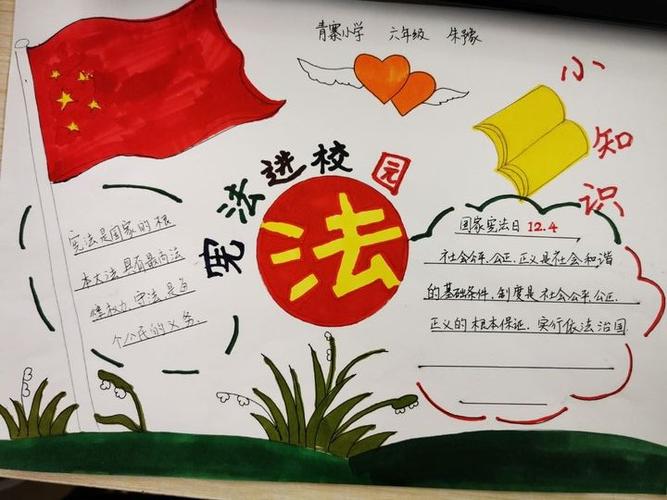 青寨小学 六年级 朱豫
小知识
宪法进校园
法
宪法是国家的根
本大法,具有最高法
律权力,守法是每
个公民的义务.
国家宪法日12.4
社会公平.公正.正义是社会和谐
的基础条件.制度是社会公平.公正.
正义的根本保证.实行依法治国.